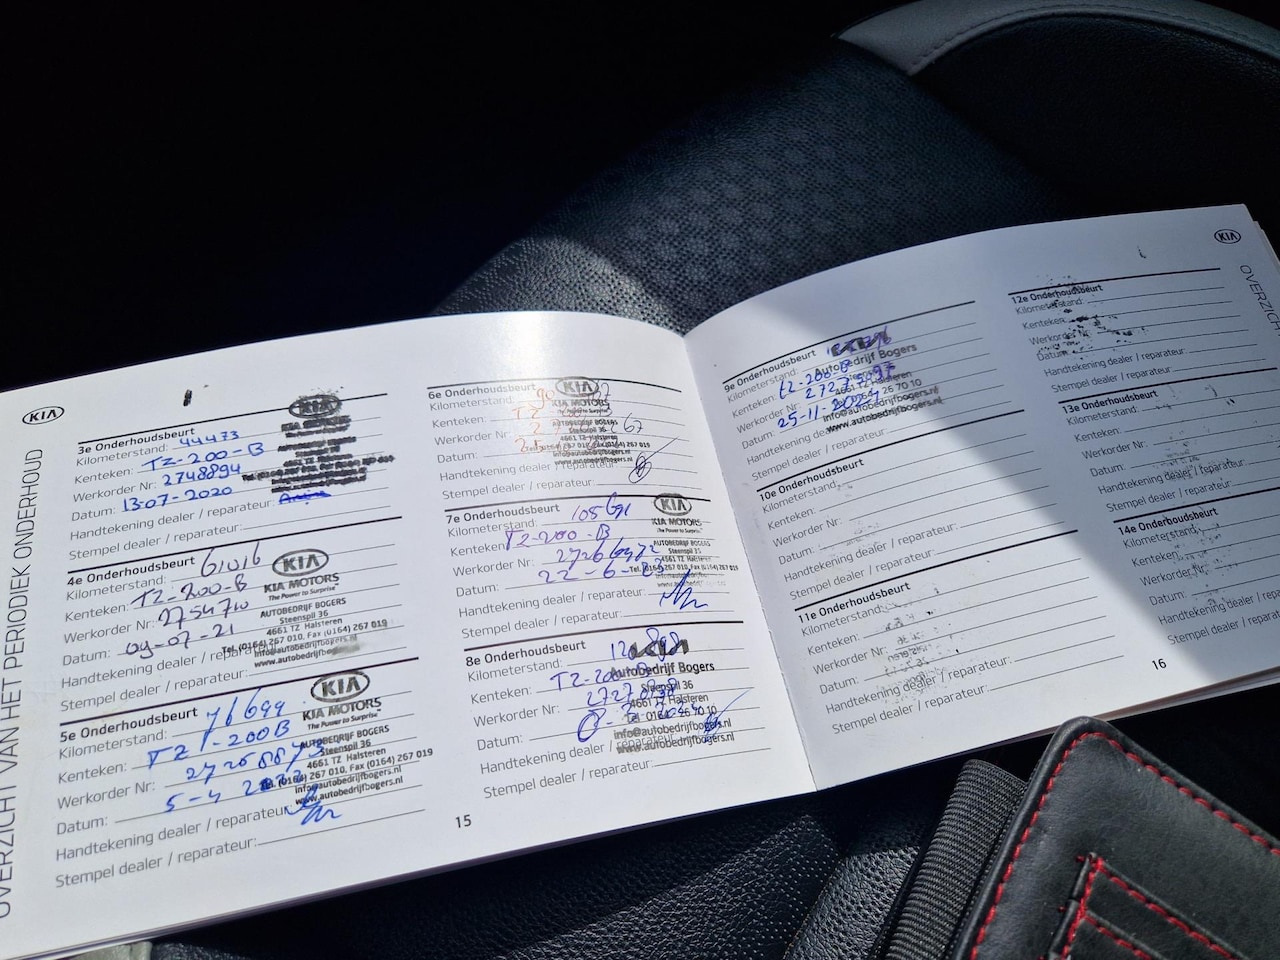 KIA
OVERZICHT VAN HET PERIODIEK ONDERHOUD
3e Onderhoudsbeurt
Kilometerstand: 44473
Kenteken: TZ-200-B
Werkorder Nr: 2748894
Datum: 13-07-2020
Handtekening dealer / reparateur:
Stempel dealer / reparateur:
4e Onderhoudsbeurt
Kilometerstand: 61016
Kenteken: TZ-200-B
Werkorder Nr: 2754710
Datum: 09-07-21
Handtekening dealer / reparateur:
Stempel dealer / reparateur:
KIA
KIA MOTORS
The Power to Surprise
AUTOBEDRIJF BOGERS
Steenspil 36
4661 TZ Halsteren
Tel. (0164) 267 010, Fax (0164) 267 019
5e Onderhoudsbeurt
Kilometerstand: 71699
Kenteken: TZ-200B
Werkorder Nr:
Datum: 5-4
Handtekening dealer / reparateur:
Stempel dealer / reparateur:
KIA
KIA MOTORS
The Power to Surprise
AUTOBEDRIJF BOGERS
Steenspil 36
4661 TZ Halsteren
Tel. (0164) 267 010, Fax (0164) 267 019
info@autobedrijfbogers.nl
www.autobedrijfbogers.nl
6e Onderhoudsbeurt
Kilometerstand:
Kenteken:
Werkorder Nr:
Datum:
Handtekening dealer / reparateur:
Stempel dealer / reparateur:
KIA
KIA MOTORS
The Power to Surprise
4661 TZ Halsteren
7e Onderhoudsbeurt
Kilometerstand: 105691
Kenteken: TZ-200-B
Werkorder Nr:
Datum: 22-6-
Handtekening dealer / reparateur:
Stempel dealer / reparateur:
KIA
KIA MOTORS
The Power to Surprise
AUTOBEDRIJF BOGERS
Steenspil 36
4661 TZ Halsteren
8e Onderhoudsbeurt
Kilometerstand:
Kenteken:
Werkorder Nr:
Datum:
Handtekening dealer / reparateur:
Stempel dealer / reparateur:
Autobedrijf Bogers
Steenspil 36
4661 TZ Halsteren
Tel. 0164 26 70 10
info@autobedrijfbogers.nl
www.autobedrijfbogers.nl
15
KIA
OVERZICHT
9e Onderhoudsbeurt
Kilometerstand:
Kenteken: TZ-200-B
Werkorder Nr:
Datum: 25-11-2024
Handtekening dealer
Stempel dealer / reparateur:
Autobedrijf Bogers
4661 TZ Halsteren
info@autobedrijfbogers.nl
www.autobedrijfbogers.nl
10e Onderhoudsbeurt
Kilometerstand:
Kenteken:
Werkorder Nr:
Datum:
Handtekening dealer / reparateur:
Stempel dealer / reparateur:
11e Onderhoudsbeurt
Kilometerstand:
Kenteken:
Werkorder Nr:
Datum:
Handtekening dealer / reparateur:
Stempel dealer / reparateur:
12e Onderhoudsbeurt
Kilometerstand:
Kenteken:
Werkorder Nr:
Datum:
Handtekening dealer / reparateur:
Stempel dealer / reparateur:
13e Onderhoudsbeurt
Kilometerstand:
Kenteken:
Werkorder Nr:
Datum:
Handtekening dealer / reparateur:
Stempel dealer / reparateur:
14e Onderhoudsbeurt
Kilometerstand:
Kenteken:
Werkorder Nr:
Datum:
Handtekening dealer / reparateur:
Stempel dealer /
16